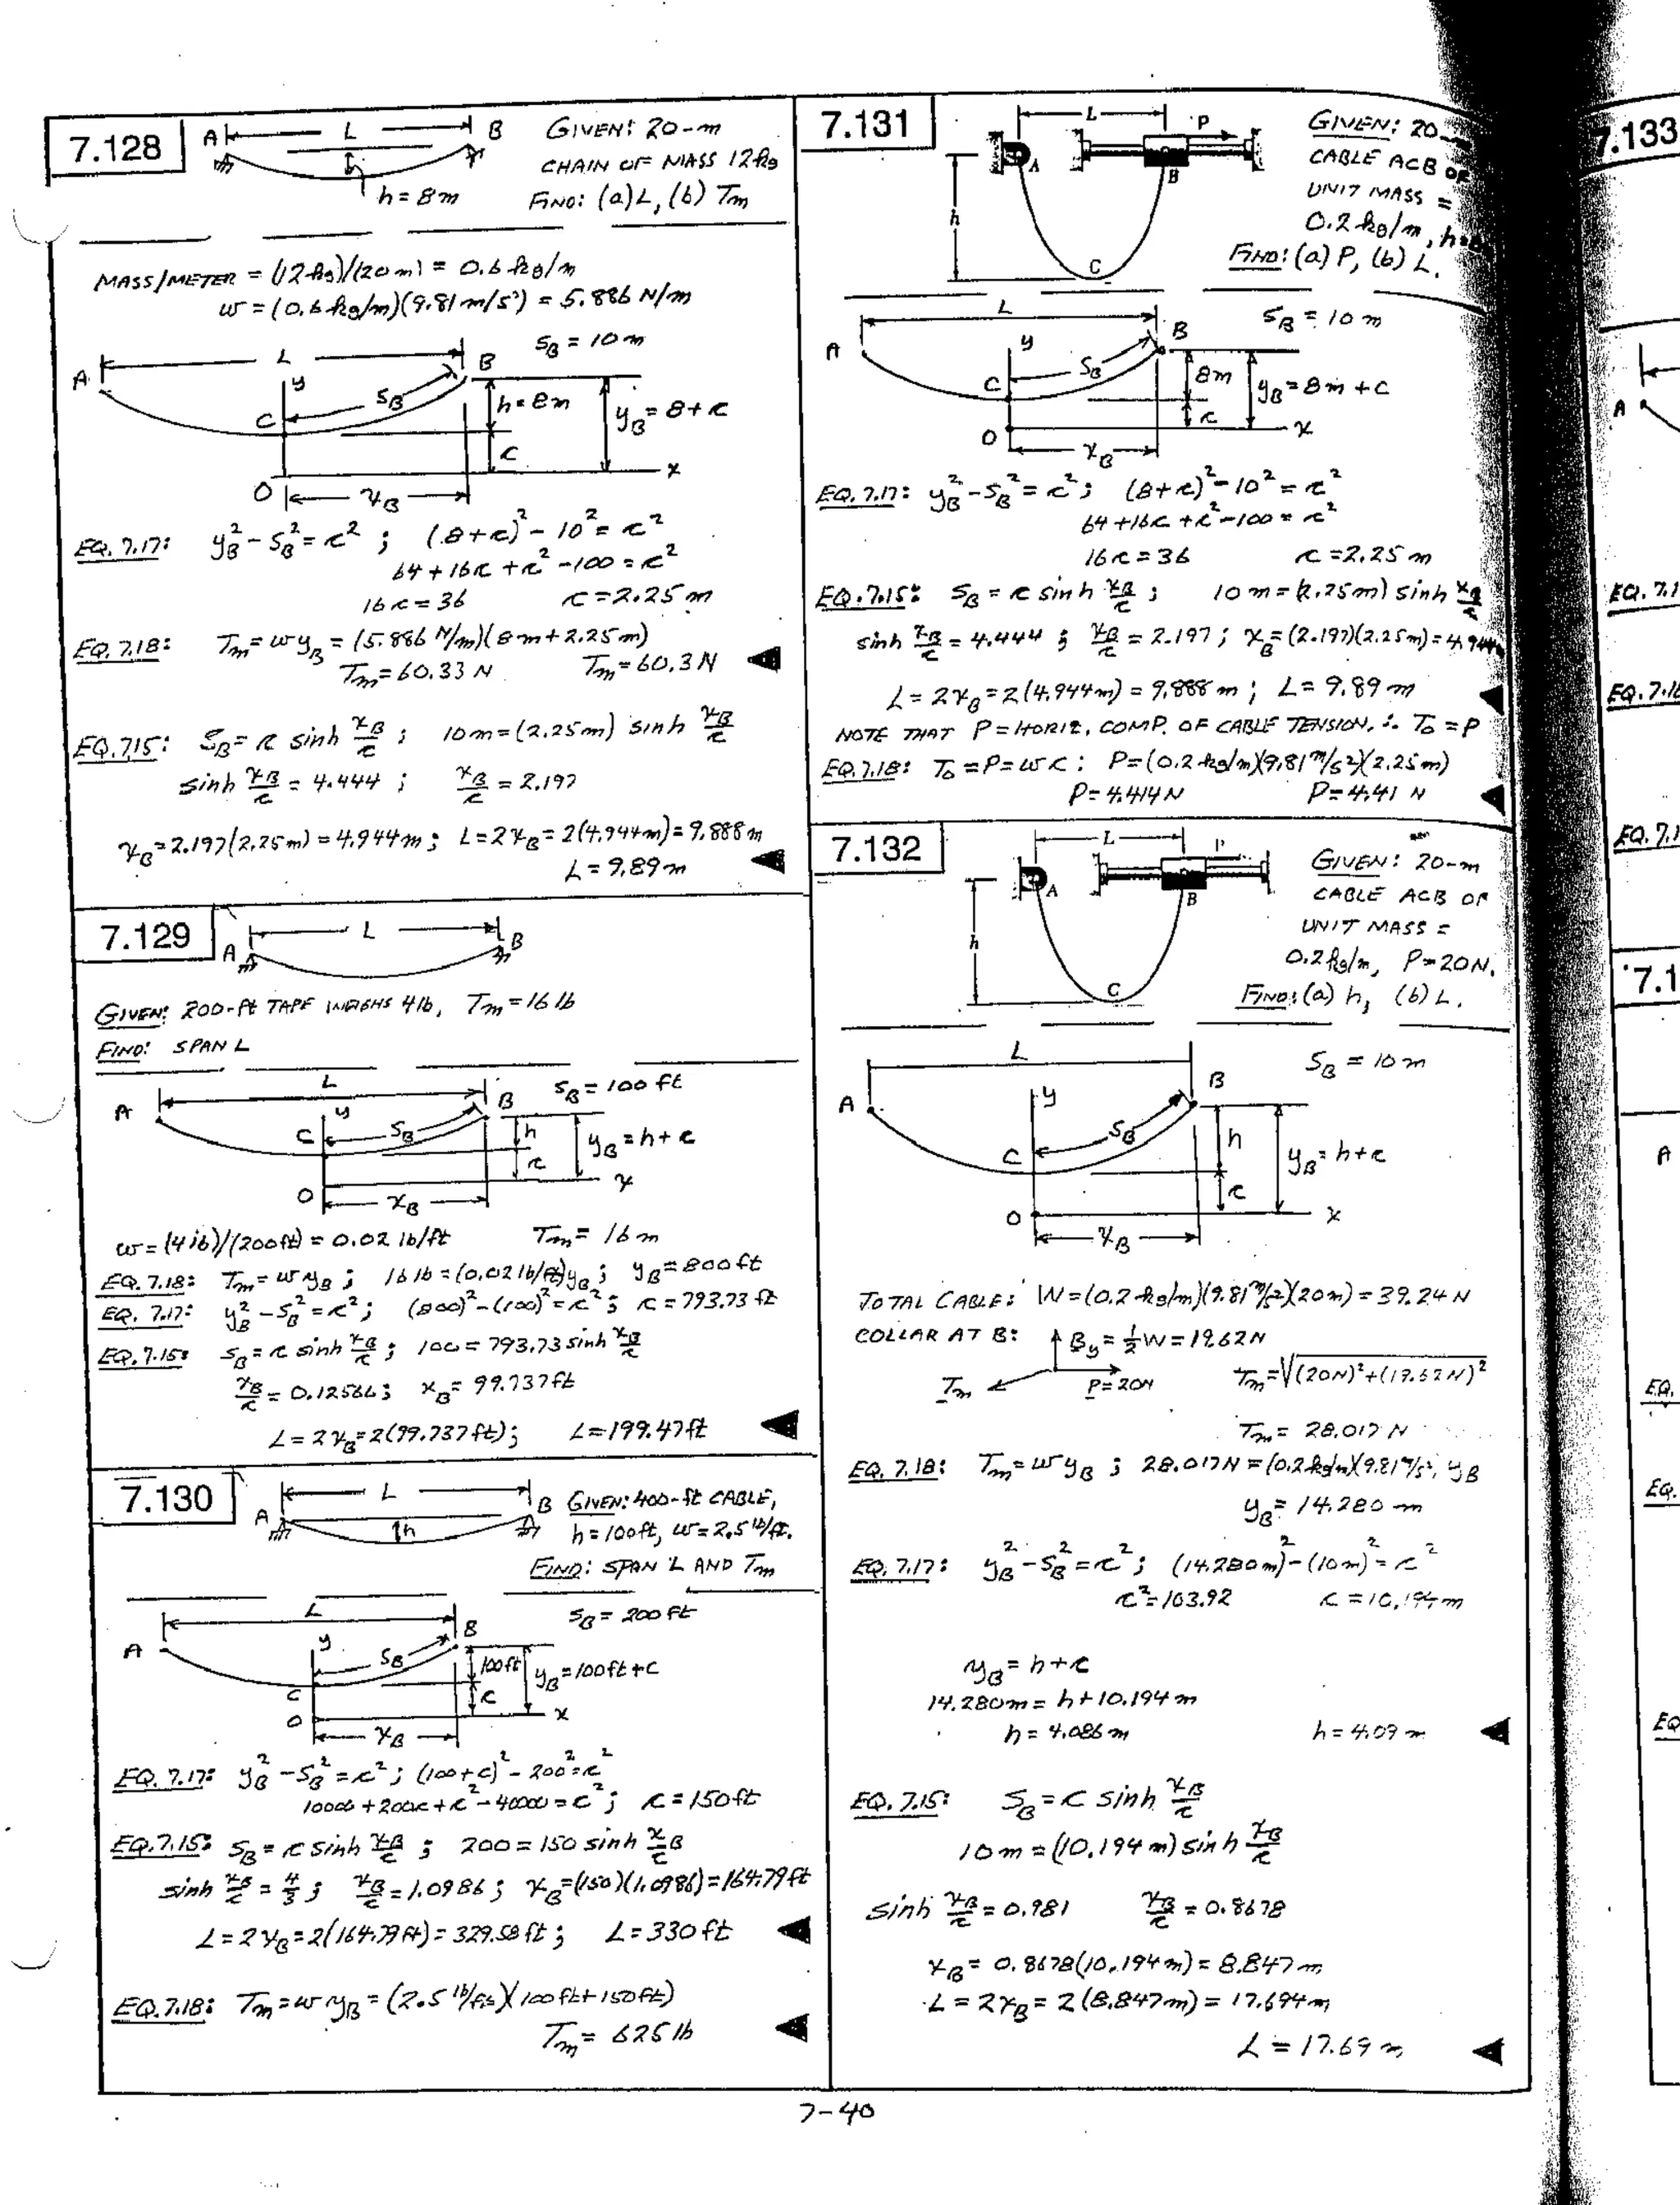 7.128
A L B
h = 8m
GIVEN: 20-m
CHAIN OF MASS 12 kg
FIND: (a) L, (b) Tm
MASS/METER = (12 kg)/(20 m) = 0.6 kg/m
w = (0.6 kg/m)(9.81 m/s²) = 5.886 N/m
L sB = 10 m
A y B
sB h = 8m yB = 8 + c
C c
O xB x
EQ. 7.17: yB² - sB² = c² ; (8+c)² - 10² = c²
64 + 16c + c² - 100 = c²
16c = 36 c = 2.25 m
EQ. 7.18: Tm = w yB = (5.886 N/m)(8m + 2.25m)
Tm = 60.33 N Tm = 60.3 N
EQ. 7.15: sB = c sinh xB/c ; 10 m = (2.25 m) sinh xB/c
sinh xB/c = 4.444 ; xB/c = 2.197
xB = 2.197(2.25 m) = 4.944 m ; L = 2xB = 2(4.944 m) = 9.888 m
L = 9.89 m
7.129
A L B
GIVEN: 200-ft TAPE WEIGHS 4 lb, Tm = 16 lb
FIND: SPAN L
L sB = 100 ft
A y B
C sB h yB = h + c
c
O xB x
w = (4 lb)/(200 ft) = 0.02 lb/ft Tm = 16 m
EQ. 7.18: Tm = w yB ; 16 lb = (0.02 lb/ft) yB ; yB = 800 ft
EQ. 7.17: yB² - sB² = c² ; (800)² - (100)² = c² ; c = 793.73 ft
EQ. 7.15: sB = c sinh xB/c ; 100 = 793.73 sinh xB/c
xB/c = 0.12566 ; xB = 99.737 ft
L = 2xB = 2(99.737 ft) ; L = 199.47 ft
7.130
A L B
h
GIVEN: 400-ft CABLE,
h = 100 ft, w = 2.5 lb/ft.
FIND: SPAN L AND Tm
L sB = 200 ft
A y B
sB 100 ft yB = 100 ft + c
C c
O xB x
EQ. 7.17: yB² - sB² = c² ; (100 + c)² - 200² = c²
10000 + 200c + c² - 40000 = c² ; c = 150 ft
EQ. 7.15: sB = c sinh xB/c ; 200 = 150 sinh xB/c
sinh xB/c = 4/3 ; xB/c = 1.0986 ; xB = (150)(1.0986) = 164.79 ft
L = 2xB = 2(164.79 ft) = 329.58 ft ; L = 330 ft
EQ. 7.18: Tm = w yB = (2.5 lb/ft)(100 ft + 150 ft)
Tm = 625 lb
7.131
L P
A B
h
C
GIVEN: 20-
CABLE ACB OF
UNIT MASS =
0.2 kg/m, h =
FIND: (a) P, (b) L.
L sB = 10 m
A y B
C sB 8m yB = 8m + c
c
O xB x
EQ. 7.17: yB² - sB² = c² ; (8+c)² - 10² = c²
64 + 16c + c² - 100 = c²
16c = 36 c = 2.25 m
EQ. 7.15: sB = c sinh xB/c ; 10 m = (2.25 m) sinh xB/c
sinh xB/c = 4.444 ; xB/c = 2.197 ; xB = (2.197)(2.25 m) = 4.944
L = 2xB = 2(4.944 m) = 9.888 m ; L = 9.89 m
NOTE THAT P = HORIZ. COMP. OF CABLE TENSION, ∴ To = P
EQ. 7.18: To = P = w c : P = (0.2 kg/m)(9.81 m/s²)(2.25 m)
P = 4.414 N P = 4.41 N
7.132
L P
A B
h
C
GIVEN: 20-m
CABLE ACB OF
UNIT MASS =
0.2 kg/m, P = 20 N.
FIND: (a) h, (b) L.
L sB = 10 m
A y B
C sB h yB = h + c
c
O xB x
TOTAL CABLE: W = (0.2 kg/m)(9.81 m/s²)(20 m) = 39.24 N
COLLAR AT B: By = ½W = 19.62 N
Tm P = 20 N Tm = √(20N)² + (19.62N)²
Tm = 28.017 N
EQ. 7.18: Tm = w yB ; 28.017 N = (0.2 kg/m)(9.81 m/s²) yB
yB = 14.280 m
EQ. 7.17: yB² - sB² = c² ; (14.280 m)² - (10 m)² = c²
c² = 103.92 c = 10.194 m
yB = h + c
14.280 m = h + 10.194 m
h = 4.086 m h = 4.09 m
EQ. 7.15: sB = c sinh xB/c
10 m = (10.194 m) sinh xB/c
sinh xB/c = 0.981 xB/c = 0.8678
xB = 0.8678(10.194 m) = 8.847 m
L = 2xB = 2(8.847 m) = 17.694 m
L = 17.69 m
7-40
7.133
A
EQ. 7.1
EQ. 7.1
EQ. 7.1
7.1
A
EQ.
EQ.
EQ